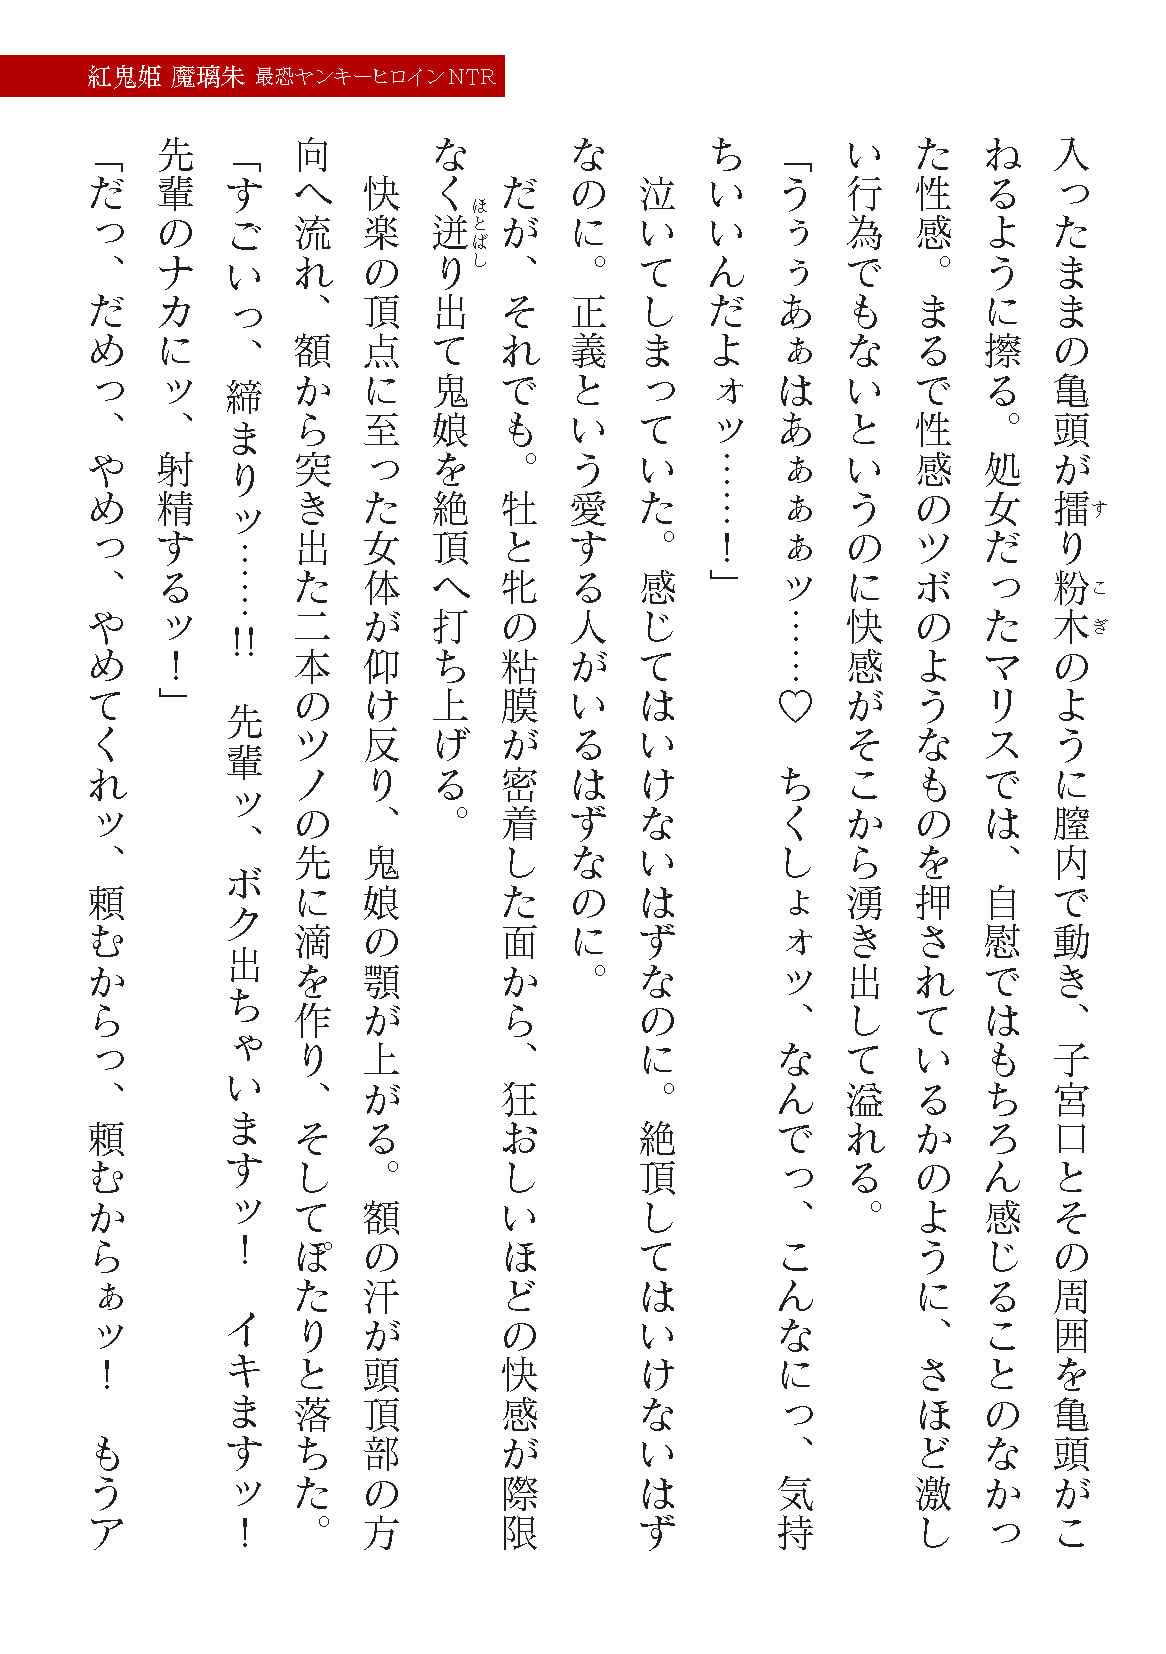 紅鬼姫 魔璃朱 最恐ヤンキーヒロインNTR
入ったままの亀頭が擂り粉木のように膣内で動き、子宮口とその周囲を亀頭がこ
ねるように擦る。処女だったマリスでは、自慰ではもちろん感じることのなかっ
た性感。まるで性感のツボのようなものを押されているかのように、さほど激し
い行為でもないというのに快感がそこから湧き出して溢れる。
「うぅぅあぁはあぁぁぁッ……♡　ちくしょォッ、なんでっ、こんなにっ、気持
ちいいんだよォッ……！」
　泣いてしまっていた。感じてはいけないはずなのに。絶頂してはいけないはず
なのに。正義という愛する人がいるはずなのに。
　だが、それでも。牡と牝の粘膜が密着した面から、狂おしいほどの快感が際限
なく迸り出て鬼娘を絶頂へ打ち上げる。
　快楽の頂点に至った女体が仰け反り、鬼娘の顎が上がる。額の汗が頭頂部の方
向へ流れ、額から突き出た二本のツノの先に滴を作り、そしてぽたりと落ちた。
「すごいっ、締まりッ……!!　先輩ッ、ボク出ちゃいますッ！　イキますッ！
先輩のナカにッ、射精するッ！」
「だっ、だめっ、やめっ、やめてくれッ、頼むからっ、頼むからぁッ！　もうア